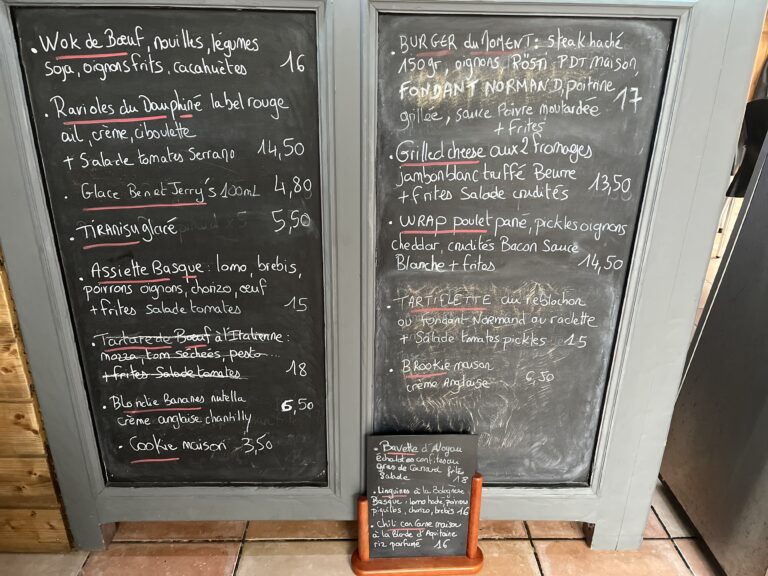 . Wok de Bœuf, nouilles, légumes
soja, oignons frits, cacahuètes 16
. Ravioles du Dauphiné label rouge
ail, crème, ciboulette
+ Salade tomates Serrano 14,50
. Glace Ben et Jerry's 100mL 4,80
. TIRAMISU glacé 5,50
. Assiette Basque : lomo, brebis,
poivrons oignons, chorizo, œuf
+ frites Salade tomates 15
. Tartare de Bœuf à l'Italienne :
mozza, tom séchées, pesto...
+ frites Salade tomates 18
. Blondie Bananes nutella
crème anglaise chantilly 6,50
. Cookie maison 3,50
. BURGER du MOMENT : steak haché
150gr, oignons, Rösti PDT maison,
FONDANT NORMAND, poitrine
grillée, sauce Poivre moutardée 17
+ frites
. Grilled cheese aux 2 fromages
jambon blanc truffé Beurre
+ frites Salade crudités 13,50
. WRAP poulet pané, pickles oignons
cheddar, crudités Bacon Sauce
Blanche + frites 14,50
. TARTIFLETTE au reblochon
ou fondant Normand ou raclette
+ Salade tomates pickles 15
. Brookie maison
crème Anglaise 6,50
. Bavette d'Aloyau
échalotes confites au
gras de Canard frites
Salade 18
. Linguines à la Bolognaise
Basque : lomo haché, poivrons
piquillos, chorizo, brebis 16
. Chili con Carne maison
à la Blonde d'Aquitaine
riz parfumé 16